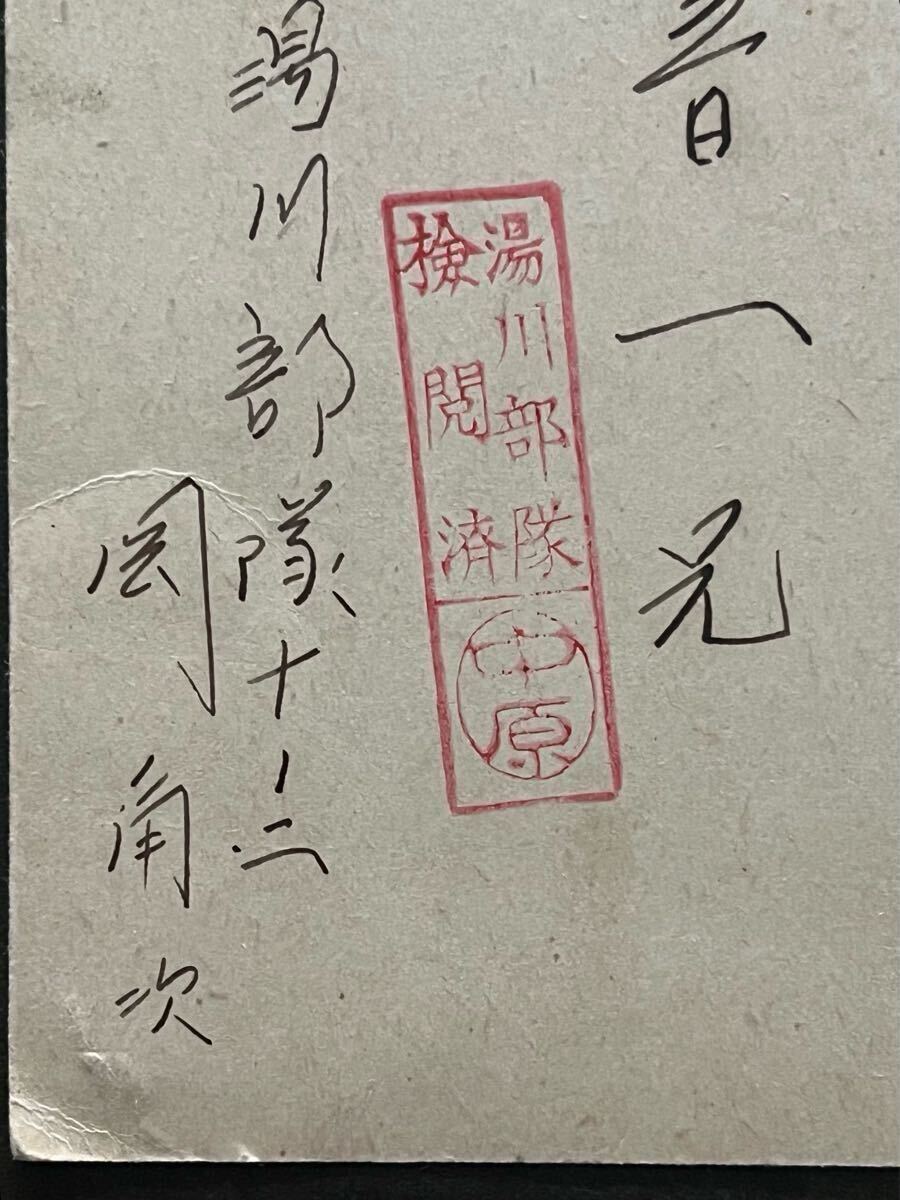 音一兄
湯川部隊
検閲済
中原
湯川部隊十ノ二
岡角次